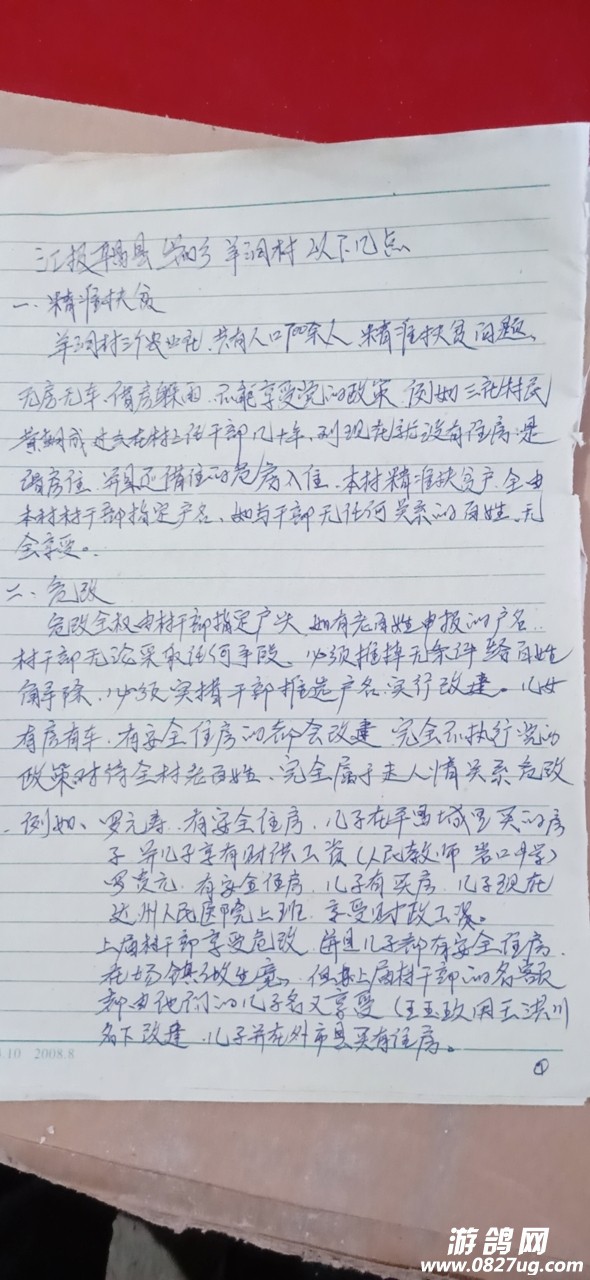 汇报平昌县 乡 羊洞村 以下几点
一、精准扶贫
羊洞村三个农业社，共有人口700余人，精准扶贫问题，
无房无车、借房躲雨，不能享受党的政策，例如三社村民
黄 成过去在村上任干部几十年，到现在就没有住房，是
借房住，并且还借住的危房入住。本村精准扶贫户，全由
本村村干部指定户名，如与干部无任何关系的百姓，无
会享受。
二、危改
危改全权由村干部指定户头，如有老百姓申报的户名，
村干部无论采取任何手段，必须推掉无条件给百姓
解除，必须实搞干部推选户名，实行改建。儿女
有房有车，有安全住房的都会改建，完全不执行党的
政策对待全村老百姓，完全属于走人情关系危改
例如、罗元寿，有安全住房，儿子在平昌城里买的房
子，并儿子享有财供工资（人民教师 岩口中学）
罗 元，有安全住房，儿子有买房，儿子现在
达州人民医院上班，享受财政工资。
上届村干部享受危改，并且儿子都有安全住房，
在场镇做生意，但是上届村干部的名额
都由他们的儿子名义享受（王玉 用王洪川
名下改建，儿子并在外市县买有住房。
10 2008.8
①
游鸽网
www.0827ug.com